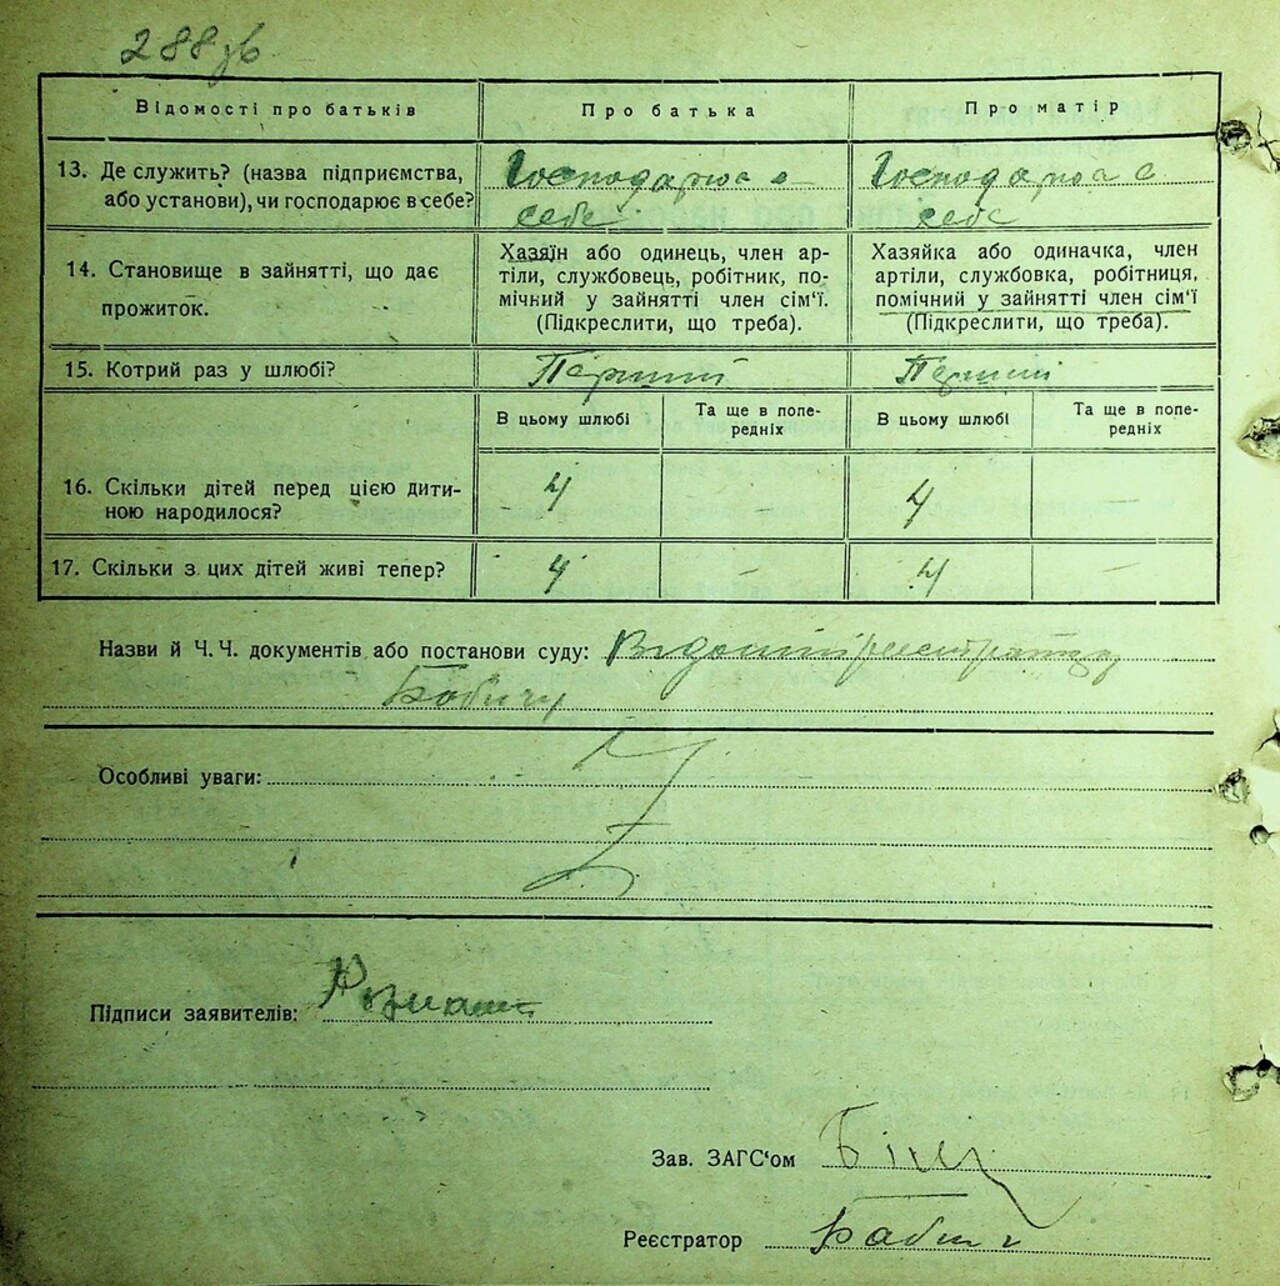 288зв
Відомості про батьків
Про батька
Про матір
13. Де служить? (назва підприємства,
або установи), чи господарює в себе?
Господарює в
себе
Господарює в
себе
14. Становище в зайнятті, що дає
прожиток.
Хазяїн або одинець, член ар-
тіли, службовець, робітник, по-
мічний у зайнятті член сім‘ї.
(Підкреслити, що треба).
Хазяйка або одиначка, член
артіли, службовка, робітниця,
помічний у зайнятті член сім‘ї
(Підкреслити, що треба).
15. Котрий раз у шлюбі?
Перший
Перший
В цьому шлюбі
Та ще в попе-
редніх
В цьому шлюбі
Та ще в попе-
редніх
16. Скільки дітей перед цією дити-
ною народилося?
4
4
17. Скільки з цих дітей живі тепер?
4
–
4
–
Назви й Ч. Ч. документів або постанови суду:
Особливі уваги:
Підписи заявителів:
Зав. ЗАГС‘ом
Реєстратор